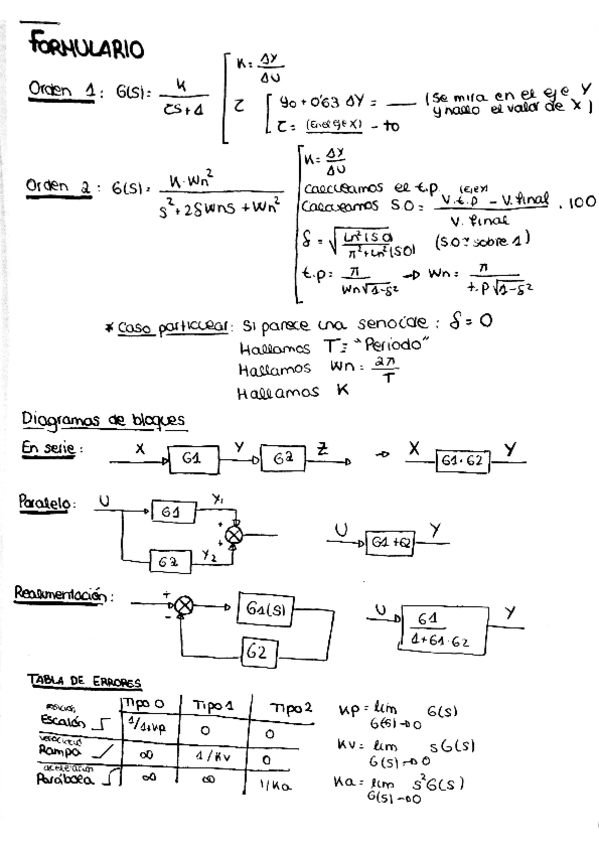 FORMULARIO
Orden 1: G(s) = K / (τs+1) [ K = ΔY / ΔU
τ [ y0 + 0'63 ΔY = ___ (Se mira en el eje Y y hallo el valor de X)
τ = (En el eje X) - t0
Orden 2: G(s) = K·Wn² / (s² + 2δWnS + Wn²) [ K = ΔY / ΔU
Calculamos el t.p. (eje x)
Calculamos SO = (V.t.p - V.final) / V.final · 100
δ = √(Ln²(SO) / (π² + Ln²(SO))) (SO sobre 1)
t.p = π / (Wn√1-δ²) → Wn = π / (t.p√1-δ²)
* Caso particular: Si parece una senoide: δ = 0
Hallamos T = "Periodo"
Hallamos Wn = 2π / T
Hallamos K
Diagramas de bloques
En serie: X G1 Y G2 Z → X G1·G2 Y
Paralelo: U G1 Y1 + + G2 Y2 U G1+G2 Y
Realimentación: + - G1(s) G2 U G1 / (1+G1·G2) Y
TABLA DE ERRORES
Tipo 0 Tipo 1 Tipo 2
posición
Escalón 1/1+Kp 0 0
velocidad
Rampa ∞ 1/Kv 0
aceleración
Parábola ∞ ∞ 1/Ka
Kp = lim G(s)
G(s)→0
Kv = lim sG(s)
G(s)→0
Ka = lim s²G(s)
G(s)→0